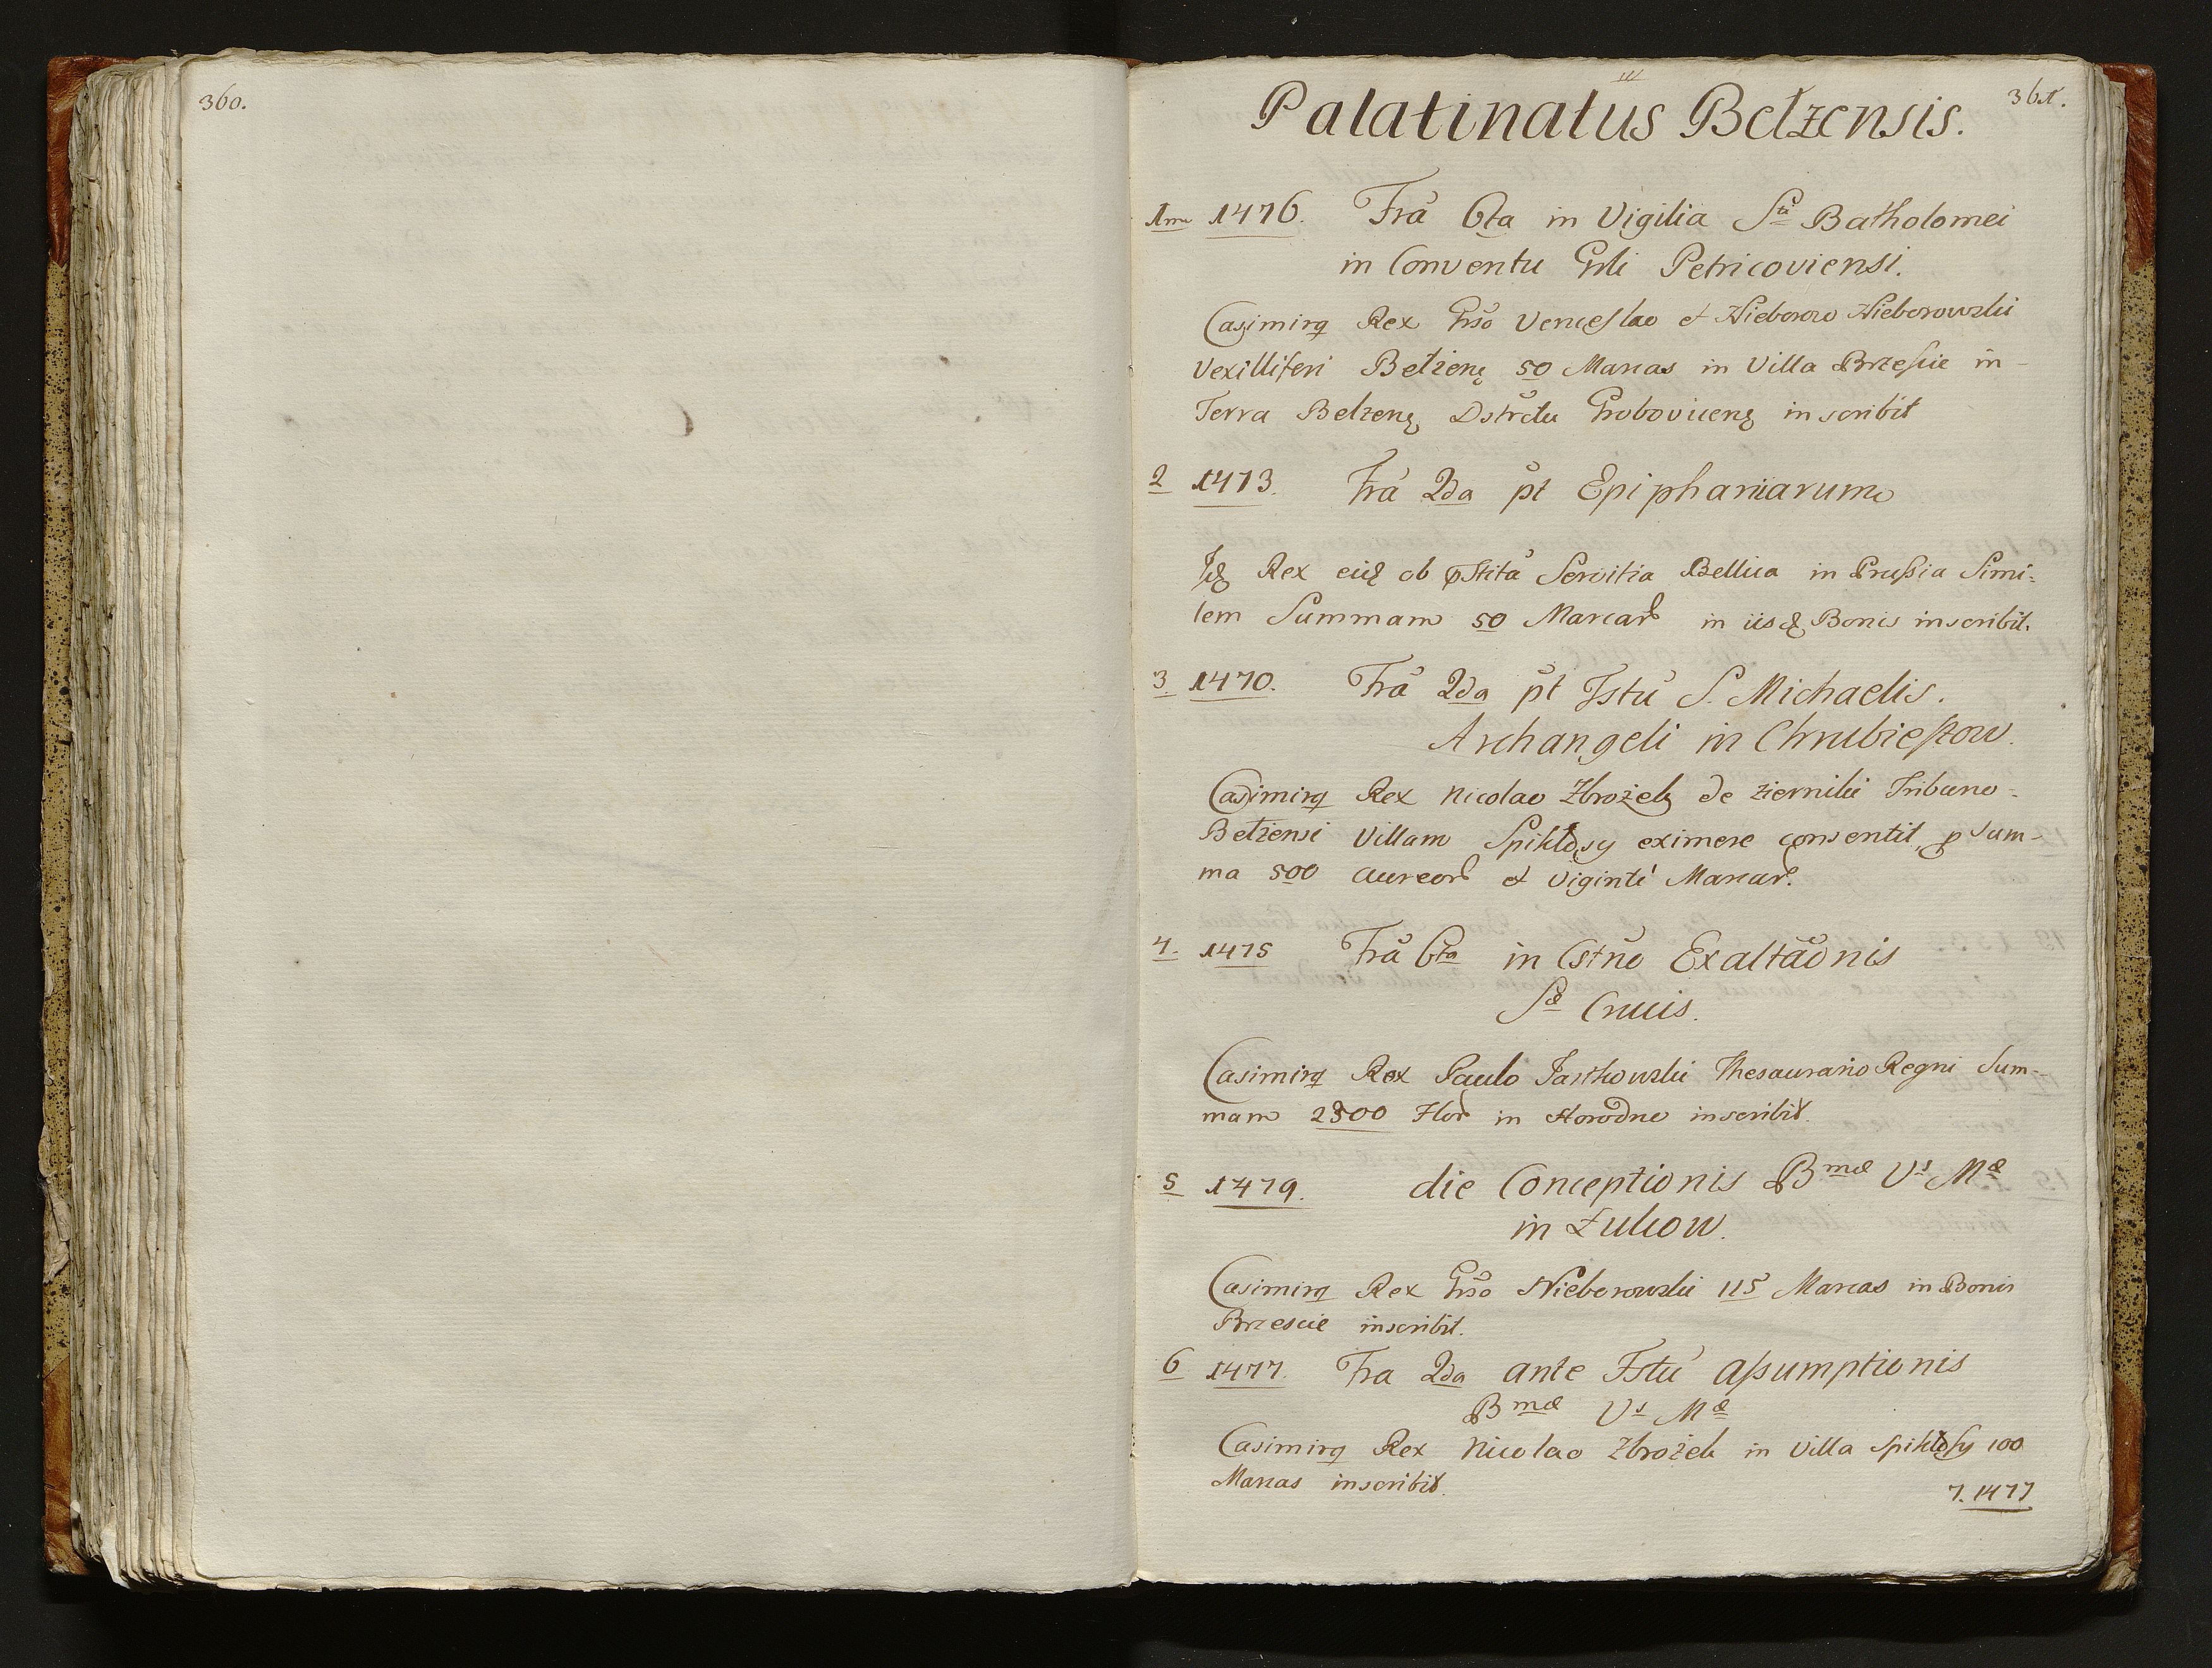 360.
361.
Palatinatus Bełzensis.
1mu 1476. Frã 6ta in Vigilia Sti Batholomei
in Conventu Gnli Petricoviensi.
Casimirq Rex Gnso Venceslao et Nieborow Nieborowski
Vexilliferi Bełzenę 50 Marcas in Villa Brzeście in
Terra Belzenę Dstrctu Graboviecenę inscribit
2 1473. Frã 2da pt Epiphaniarum
Idę Rex eidę ob pstita Servitia Bellica in Prussia Simi=
lem Summam 50 Marcar in iisdę Bonis inscribit.
3 1470. Frã 2da pt Fstũ S. Michaelis.
Archangeli in Chrubieszow.
Casimirq Rex Nicolao Zbrożek de Ziernik Tribuno
Bełzensi Villam Spikłosy eximere consentit, p sum-
ma 500 aureor et viginti Marcar.
4. 1475 Frã 6ta in Cstno Exaltãonis
Sæ Crucis.
Casimirq Rex Paulo Jasthowski Thesaurario Regni Sum-
mam 2300 Flor in Horodno inscribit.
5 1479. die Conceptionis Bmæ Vs Mæ
in Łukow.
Casimirq Rex Gnso Nieborowski 115 Marcas in Bonis
Brzescie inscribit.
6 1477. Fra 2da ante Fstũ Assumptionis
Bmæ Vs Mæ
Casimirq Rex Nicolao Zbrożek in Villa Spikłosy 100
Marcas inscribit.
7. 1477